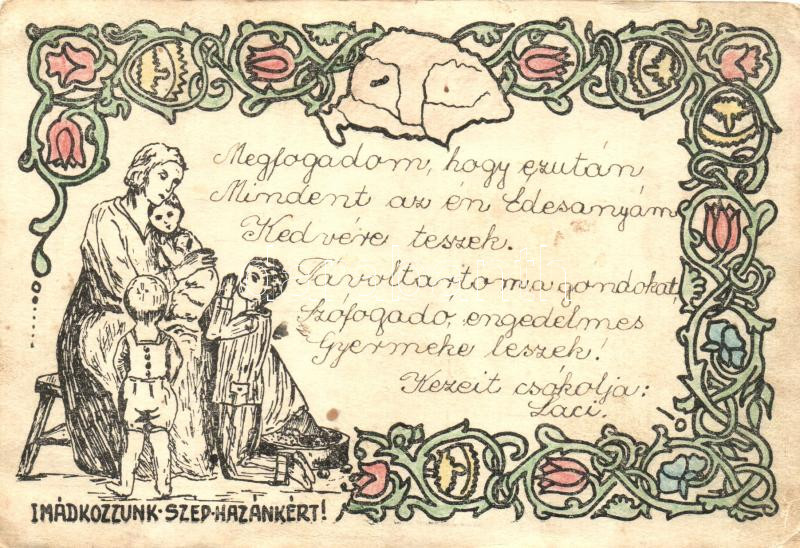 Megfogadom, hogy ezután
Mindent az én Édesanyám
Kedvére teszek.
Távoltartom a gondokat,
Szófogadó, engedelmes
Gyermeke leszek!
Kezeit csókolja:
Laci.
IMÁDKOZZUNK·SZEP·HAZÁNKÉRT!